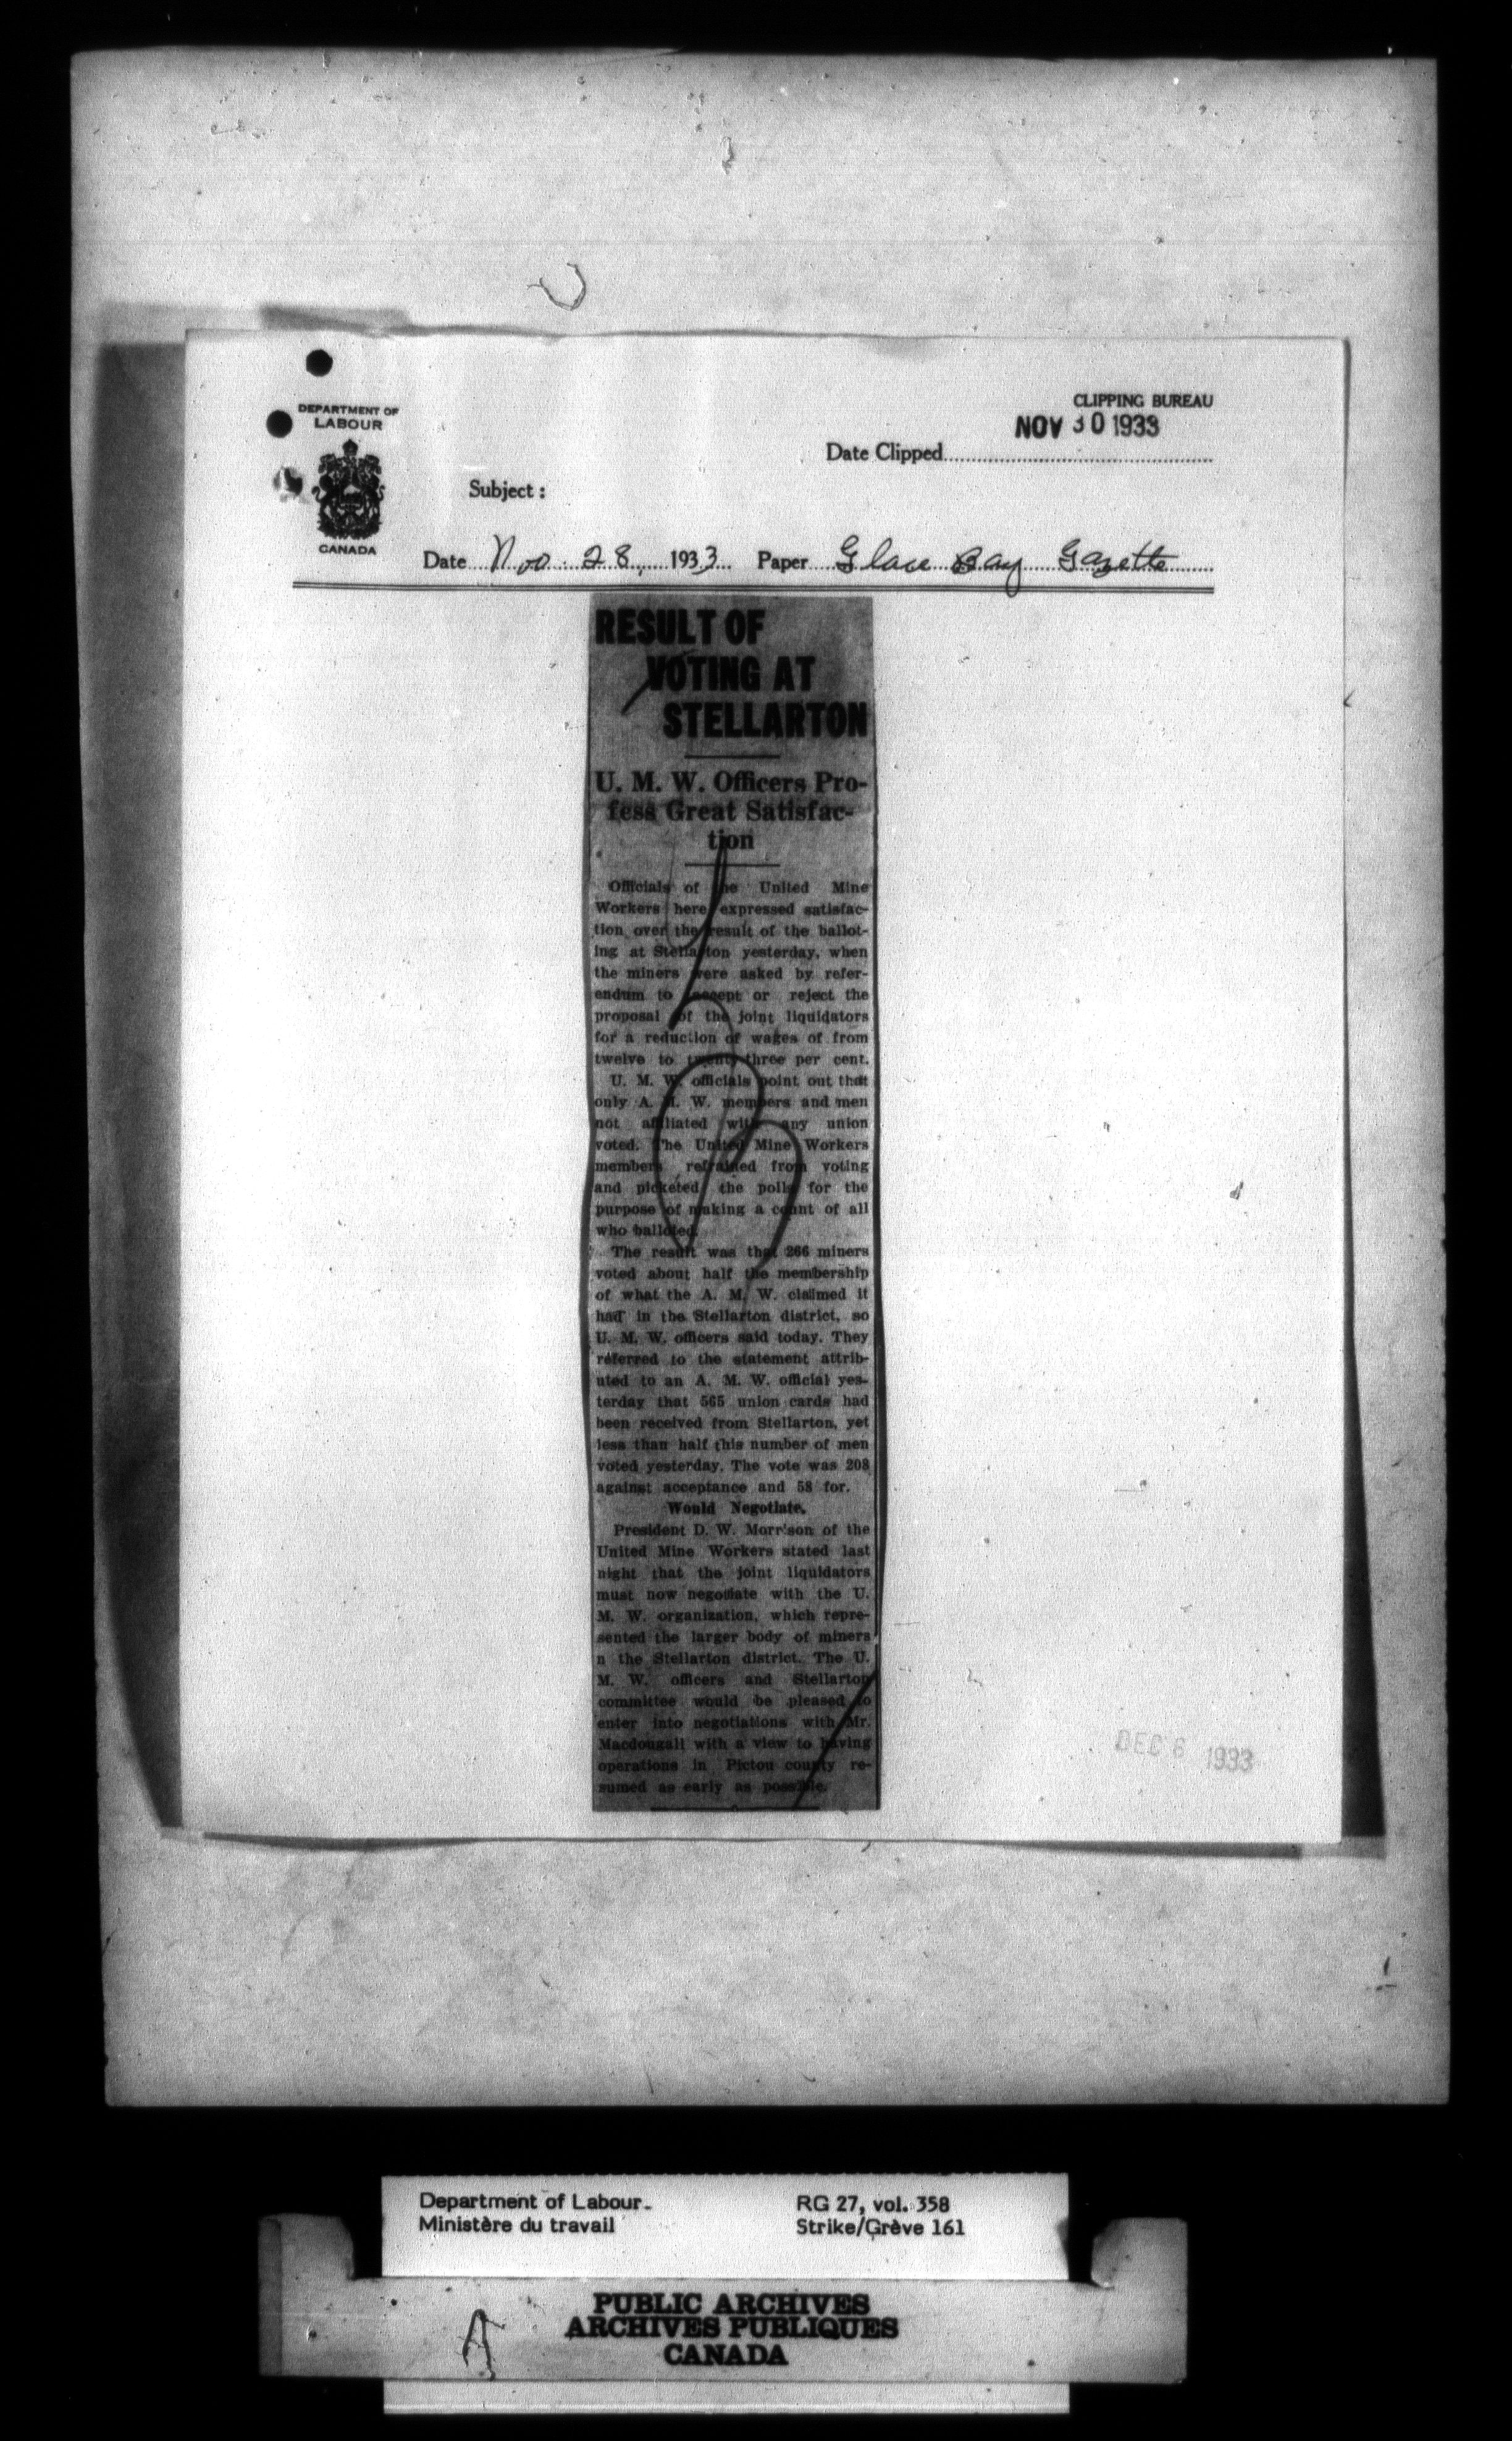 CLIPPING BUREAU
DEPARTMENT OF
LABOUR
CANADA
NOV 30 1933
Date Clipped
Subject :
Date Nov. 28, 1933 Paper Glace Bay Gazette
RESULT OF
VOTING AT
STELLARTON
U. M. W. Officers Pro-
fess Great Satisfac-
tion
Officials of the United Mine
Workers here expressed satisfac-
tion over the result of the ballot-
ing at Stellarton yesterday, when
the miners were asked by refer-
endum to accept or reject the
proposal of the joint liquidators
for a reduction of wages of from
twelve to twenty-three per cent.
U. M. W. officials point out that
only A. M. W. members and men
not affiliated with any union
voted. The United Mine Workers
members refrained from voting
and picketed the polls for the
purpose of making a count of all
who balloted.
The result was that 266 miners
voted about half the membership
of what the A. M. W. claimed it
had in the Stellarton district, so
U. M. W. officers said today. They
referred to the statement attrib-
uted to an A. M. W. official yes-
terday that 565 union cards had
been received from Stellarton, yet
less than half this number of men
voted yesterday. The vote was 208
against acceptance and 58 for.
Would Negotiate.
President D. W. Morrison of the
United Mine Workers stated last
night that the joint liquidators
must now negotiate with the U.
M. W. organization, which repre-
sented the larger body of miners
n the Stellarton district. The U.
M. W. officers and Stellarton
committee would be pleased to
enter into negotiations with Mr.
Macdougall with a view to having
operations in Pictou county re-
sumed as early as possible.
DEC 6 1933
Department of Labour
Ministère du travail
RG 27, vol. 358
Strike/Grève 161
PUBLIC ARCHIVES
ARCHIVES PUBLIQUES
CANADA